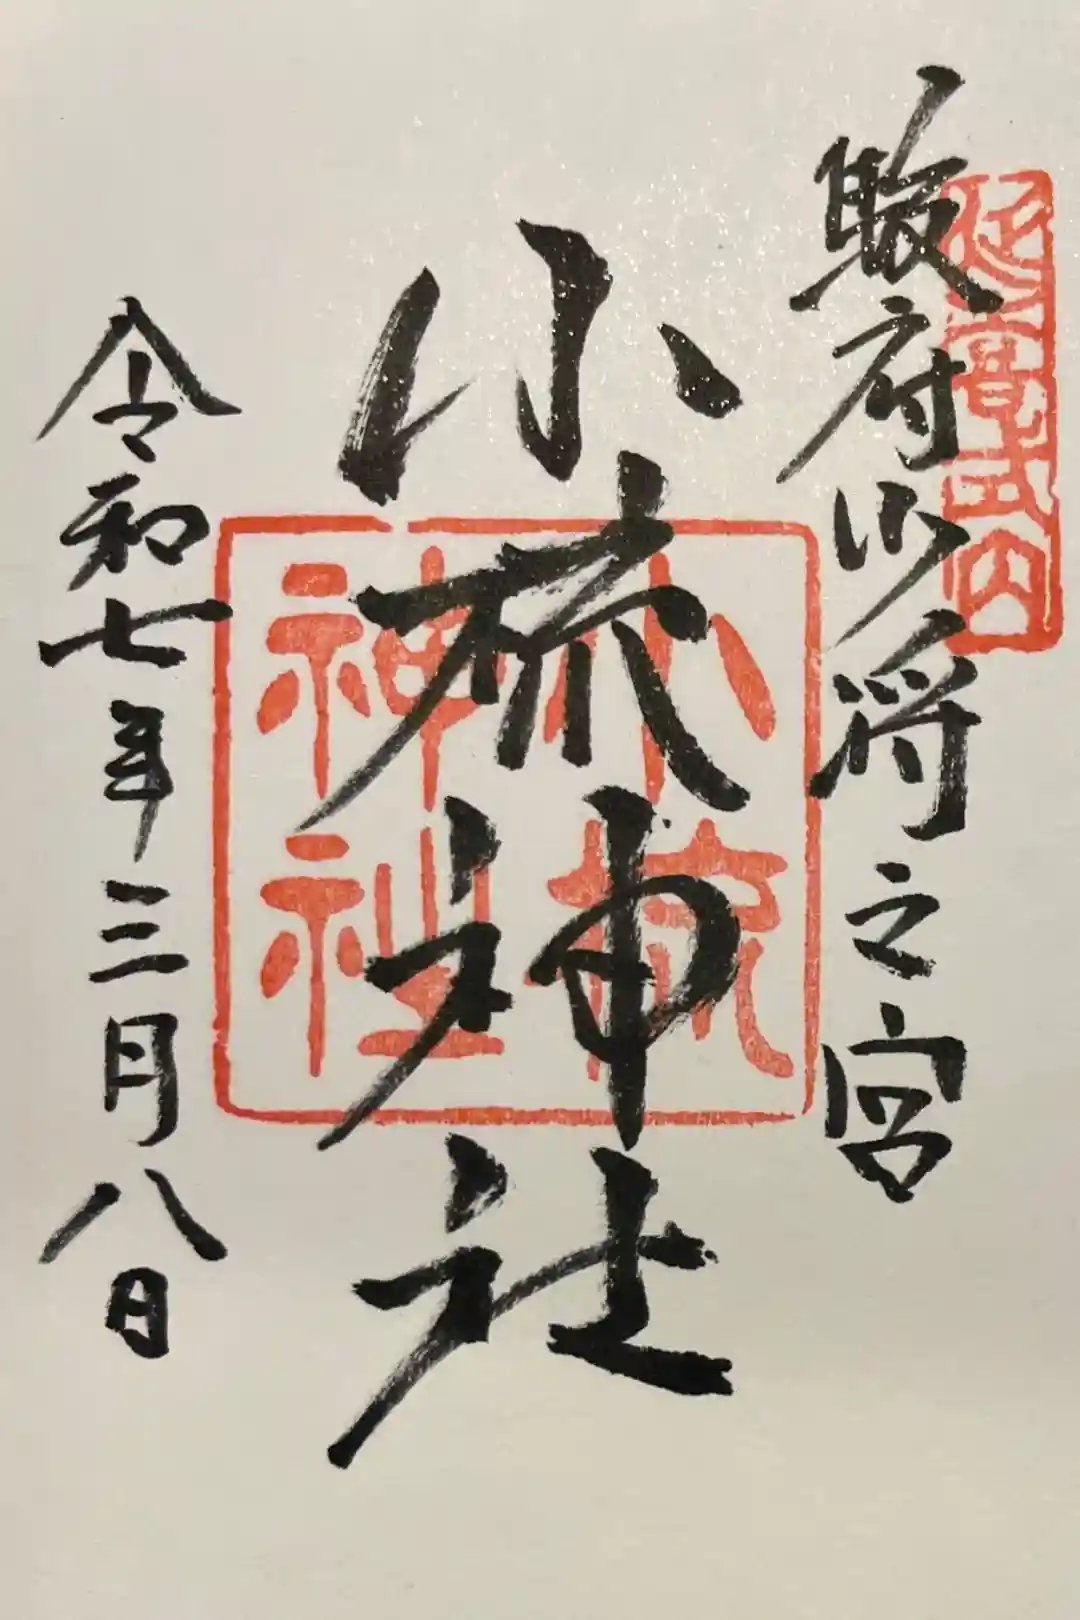 延喜式内
駿府少将之宮
小梳神社
小梳
神社
令和七年三月八日